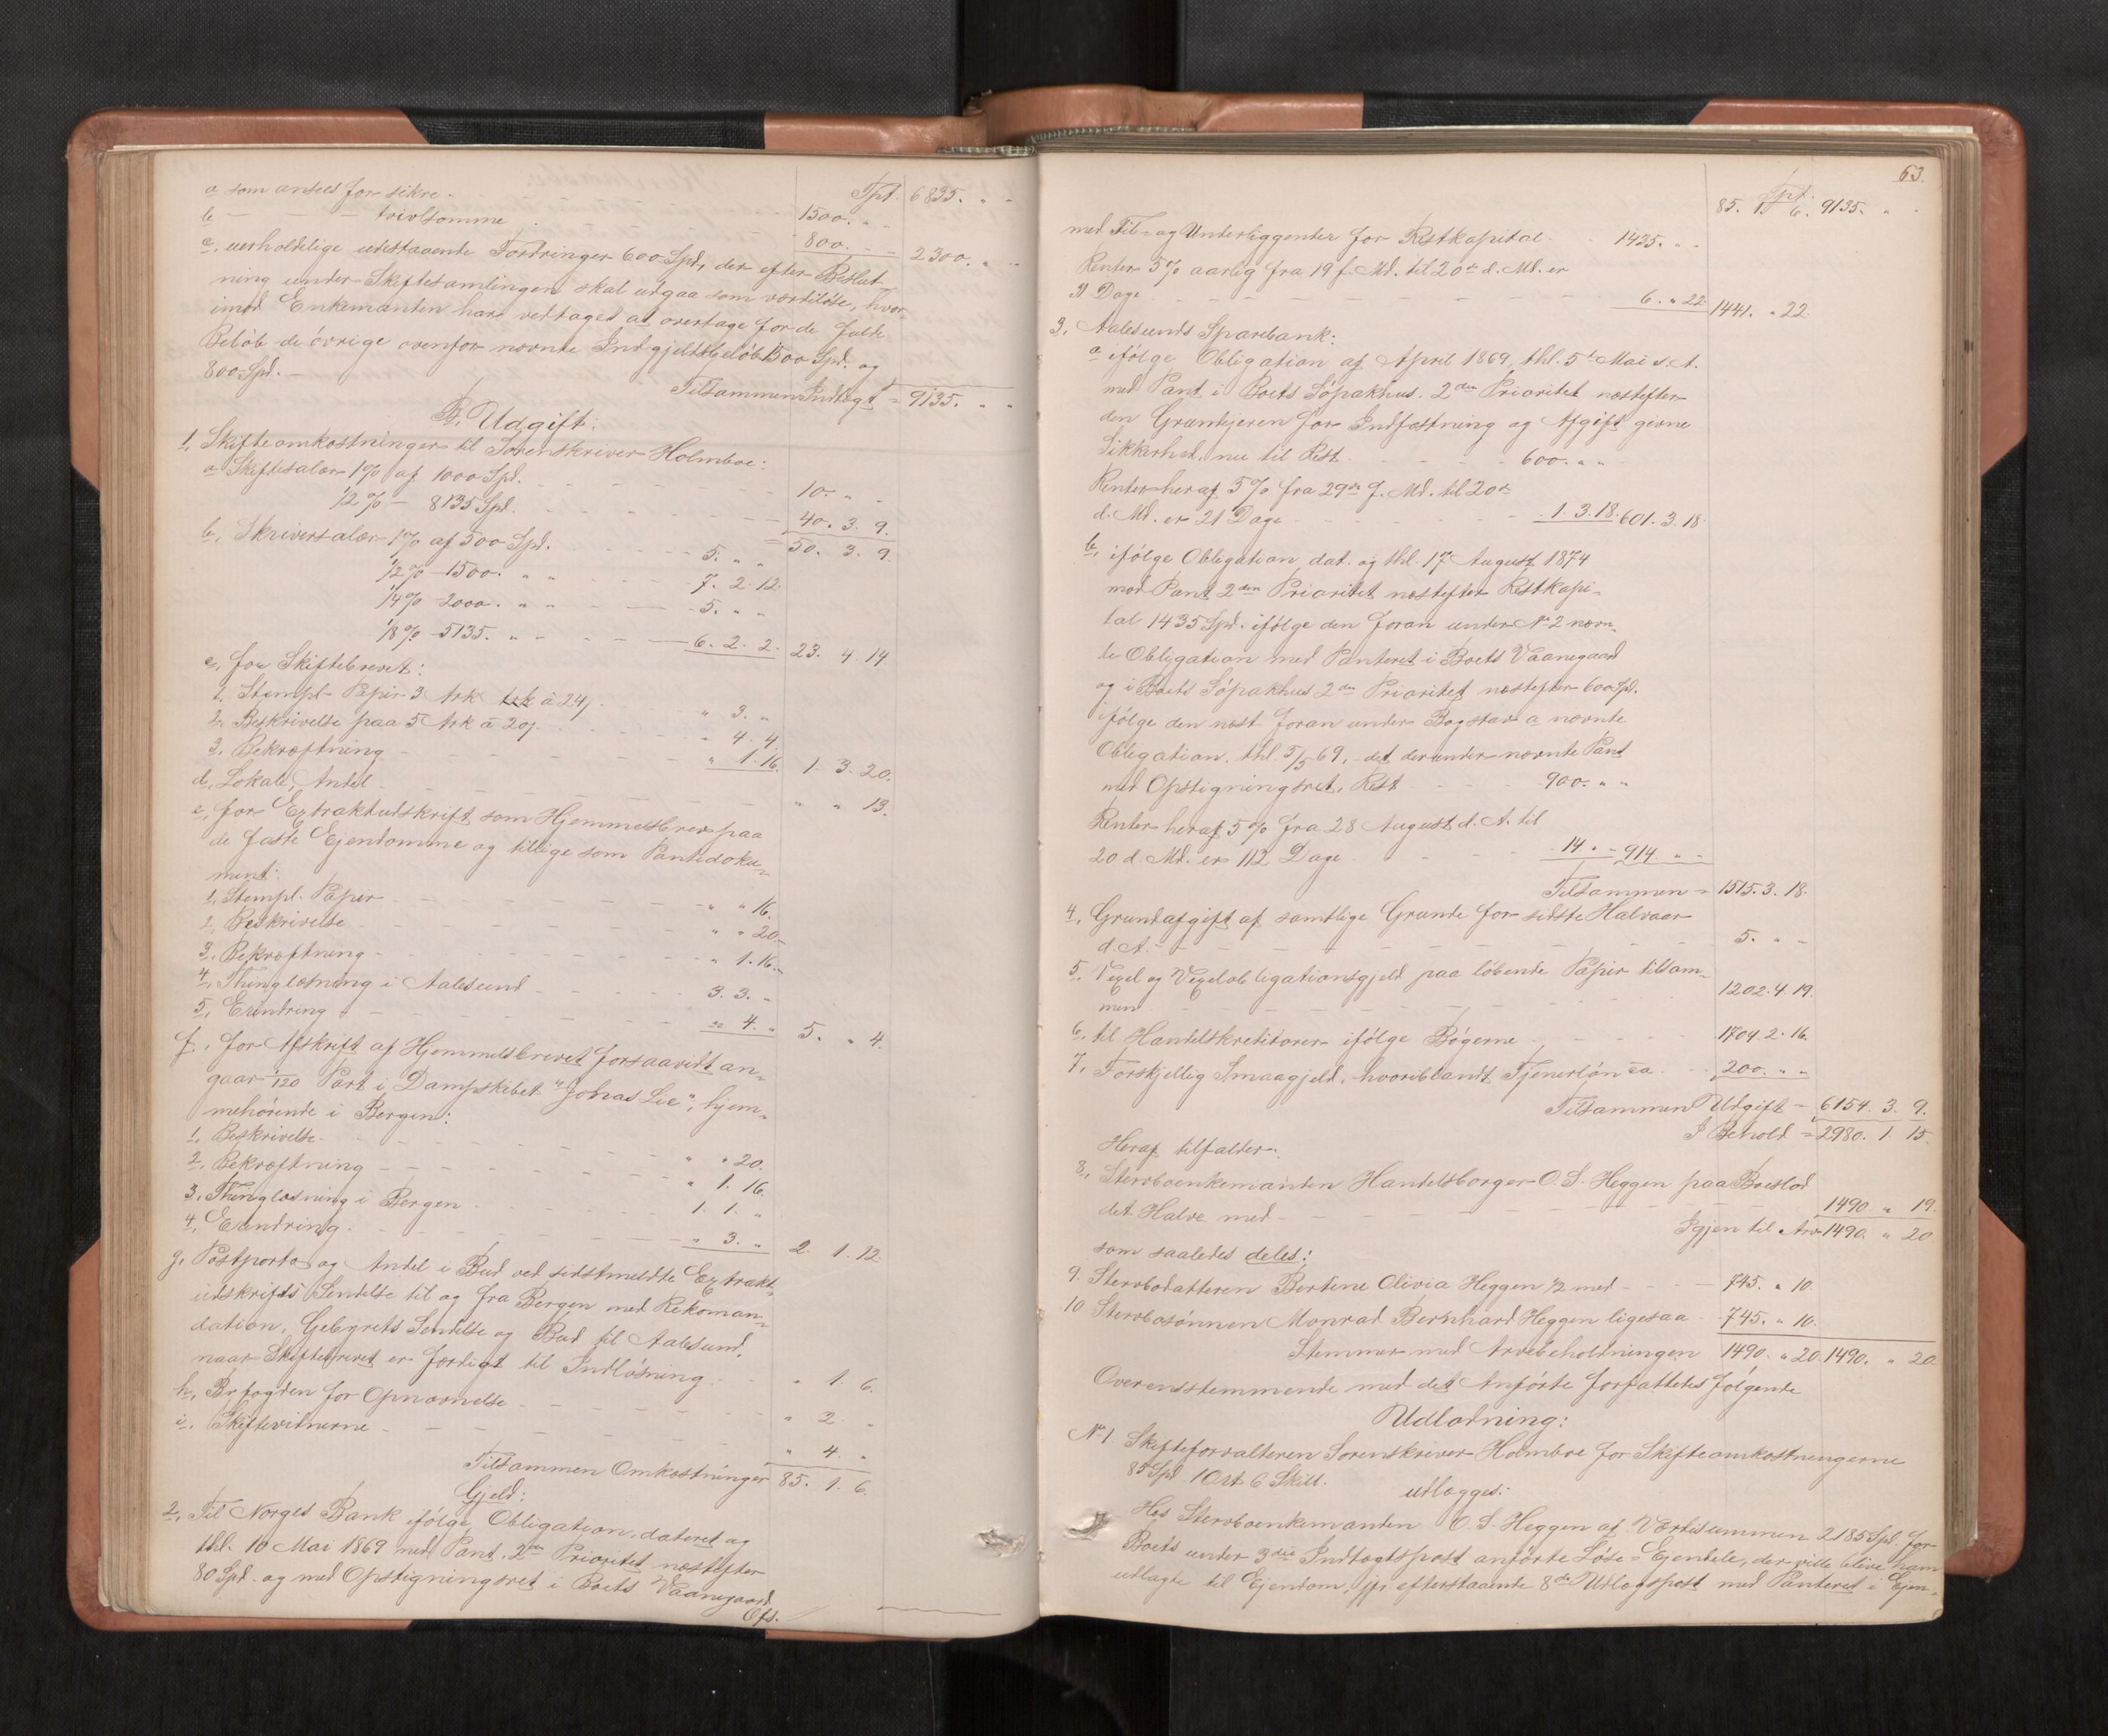 Spd. 6835. " "
a som ansees for sikre.
b — — — tvivlsomme 1500. " "
800. — — 2300. " "
c, uerholdelige udestaaende Fordringer 600 Spd, der efter Beslut-
ning under Skiftesamlingen skal udgaa som værdiløse, hvor-
imod Enkemanden have vedtaget at overtage for de fulde
Beløb de øvrige ovenfor nævnte Indgjeldsbeløb 1500 Spd. og
800 Spd. —
Tilsammen Indtægt = 9135. " "
B, Udgift:
1, Skifteomkostninger til Sorenskriver Holmboe:
a Skiftesalær 1% af 1000 Spd. 10. " "
1/2 % — 8135 Spd. 40. 3. 9.
50. 3. 9.
b, Skriversalær 1% af 500 Spd. 5. " "
1/2 % — 1500. " " 7. 2. 12.
1/4 % — 2000. " " 5. " "
1/8 % — 5135. " " 6. 2. 2. 23. 4. 14.
c, for Skiftebrevet:
1. Stempl. Papir 3 Ark à 24ʃ. " 3. "
2. Beskrivelse paa 5 Ark à 20ʃ. " 4. 4.
3, Bekræftning " 1. 16. 1. 3. 20.
d, Lokale, Andel " " 13.
e, for Extraktudskrift som Hjemmelsbrev paa
de faste Ejendomme og tillige som Pantedoku-
ment:
1, Stempl. Papir " " 16.
2, Beskrivelse " " 20.
3, Bekræftning " 1. 16.
4, Thinglæsning i Aalesund 3. 3. "
5, Erindring " 4. " 5. " 4.
f, for Afskrift af Hjemmelsbrevet forsaavidt an-
gaar 1/120 Part i Dampskibet "Jonas Lie", hjem-
mehørende i Bergen:
1, Beskrivelse " " 20.
2, Bekræftning " 1. 16.
3, Thinglæsning i Bergen 1. 1. "
4, Erindring " 3. " 2. 1. 12.
g, Postporto og Andel i Bud ved sidstmeldte Extrakt-
udskrifts Sendelse til og fra Bergen med Rekoman-
dation, Gebyrets Sendelse og Bud til Aalesund,
naar Skiftebrevet er færdigt til Indløsning " 1. 6.
h, Byfogden for Opnævnelse " 2. "
i, Skiftevidnerne " 4. "
Tilsammen Omkostninger 85. 1. 6.
Gjeld:
2, Til Norges Bank ifølge Obligation, dateret og
thl. 10 Mai 1869 med Pant, 2den Prioritet næstefter
80 Spd. og med Opstigningsret i Boets Vaanegaard
Ofs.
63.
Spd.
85. 1. 6. 9135. " "
med Til- og Underliggender for Restkapital 1435. " "
Renter 5% aarlig fra 19 f. Md. til 20de d. Md. er
31 Dage 6. " 22. 1441. " 22.
3, Aalesunds Sparebank:
a ifølge Obligation af April 1869, thl. 5te Mai s. A.
med Pant i Boets Søpakhus, 2den Prioritet næstefter
den Grundejeren for Indfæstning og Afgift givne
Sikkerhed, nu til Rest 600. " "
Renter heraf 5% fra 29de f. Md. til 20de
d. Md. er 21 Dage 1. 3. 18. 601. 3. 18.
b, ifølge Obligation dat. og thl. 17 August 1874
med Pant 2den Prioritet næstefter Restkapi-
tal 1435 Spd. ifølge den foran under No 2 nævn-
te Obligation med Panteret i Boets Vaanegaard
og i Boets Søpakhus 2den Prioritet næstefter 600 Spd.
ifølge den næst foran under Bogstav a nævnte
Obligation, thl. 5/5 69, det derunder nævnte Pant
med Opstigningsret, Rest 900. " "
Renter heraf 5% fra 28 August d. A. til
20 d. Md. er 112 Dage 14. " — 914. " "
Tilsammen = 1515. 3. 18.
4, Grundafgift af samtlige Grunde for sidste Halvaar
d. A. 5. " "
5, Vexel og Vexelobligationsgjeld paa løbende Papir tilsam-
men 1202. 4. 19.
6, til Handelskreditorer ifølge Bøgerne 1704. 2. 16.
7, Forskjellig Smaagjeld, hvoriblandt Tjenerløn ca 200. " "
Tilsammen Udgift — 6154. 3. 9.
I Behold = 2980. 1. 15.
Heraf tilfalder:
8, Stervboenkemanden Handelsborger O. S. Heggen paa Boeslod
det Halve med 1490. " 19.
Igjen til Arv 1490. " 20.
som saaledes deles:
9. Stervbodatteren Bertine Olivia Heggen 1/2 med 745. " 10.
10. Stervbosønnen Monrad Bernhard Heggen ligesaa 745. " 10.
Stemmer med Arvebeholdningen 1490. " 20. 1490. " 20.
Overensstemmende med det Anførte forfattedes følgende
Udlodning:
No 1. Skifteforvalteren Sorenskriver Holmboe for Skifteomkostningerne
85 Spd 1 Ort 6 Skill. udlægges:
Hos Stervboenkemanden O. S. Heggen af Værdisummen 2185 Spd. for
Boets under 3die Indtægtspost anførte Løse-Ejendele, der ville blive ham
udlagte til Ejendom, jfr. efterstaaende 8de Udlægspost med Panteret i Ejen-